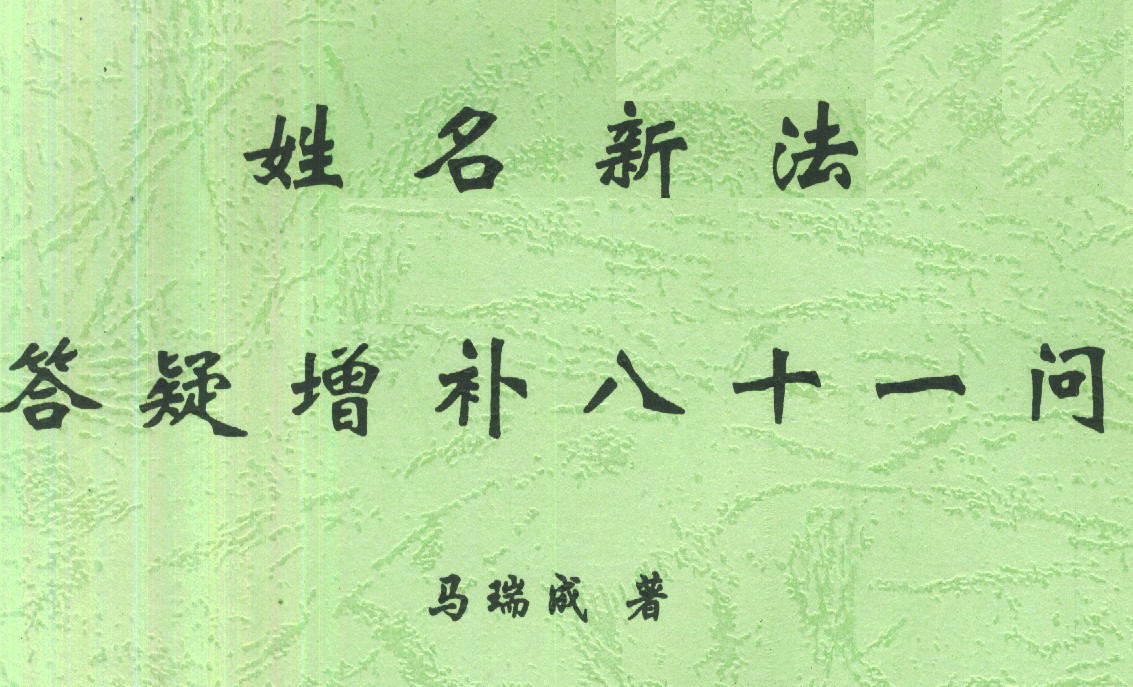 姓名新法
答疑增补八十一问
马瑞成 著